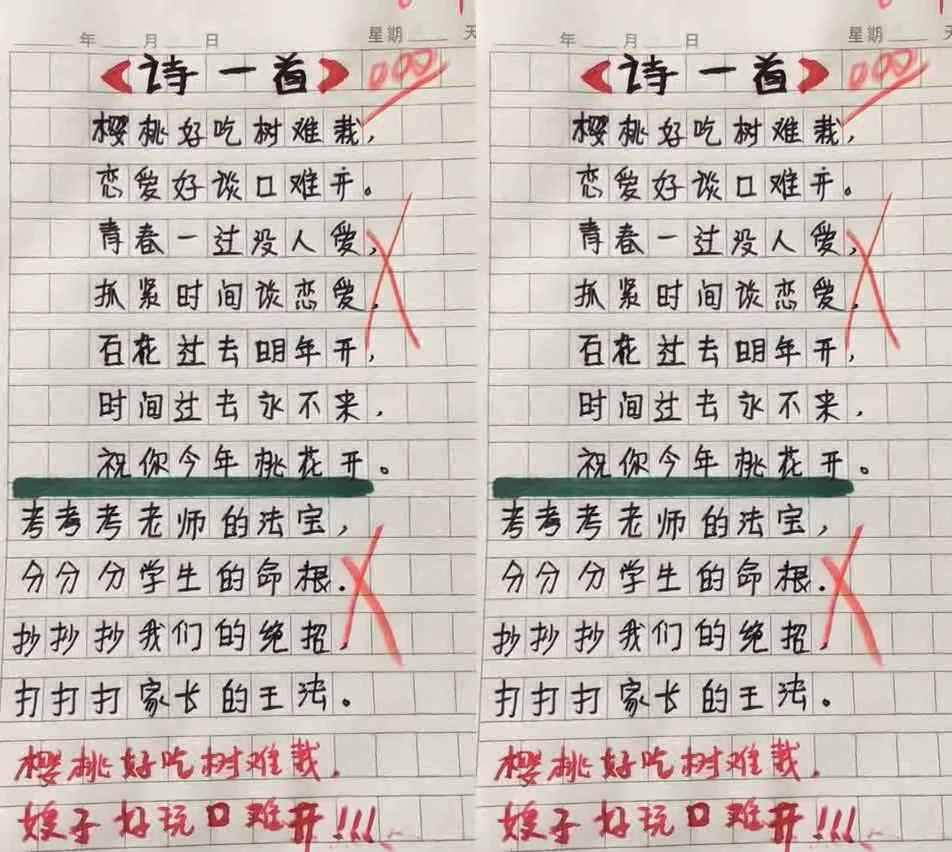 年 月 日 星期
《诗一首》 000
樱桃好吃树难栽,
恋爱好谈口难开。
青春一过没人爱,
抓紧时间谈恋爱,
石花过去明年开,
时间过去永不来,
祝你今年桃花开。
考考考老师的法宝,
分分分学生的命根.
抄抄抄我们的绝招,
打打打家长的王法。
樱桃好吃树难栽,
嫂子好玩口难开!!!
年 月 日 星期
《诗一首》 000
樱桃好吃树难栽,
恋爱好谈口难开。
青春一过没人爱,
抓紧时间谈恋爱,
石花过去明年开,
时间过去永不来,
祝你今年桃花开。
考考考老师的法宝,
分分分学生的命根.
抄抄抄我们的绝招,
打打打家长的王法。
樱桃好吃树难栽,
嫂子好玩口难开!!!